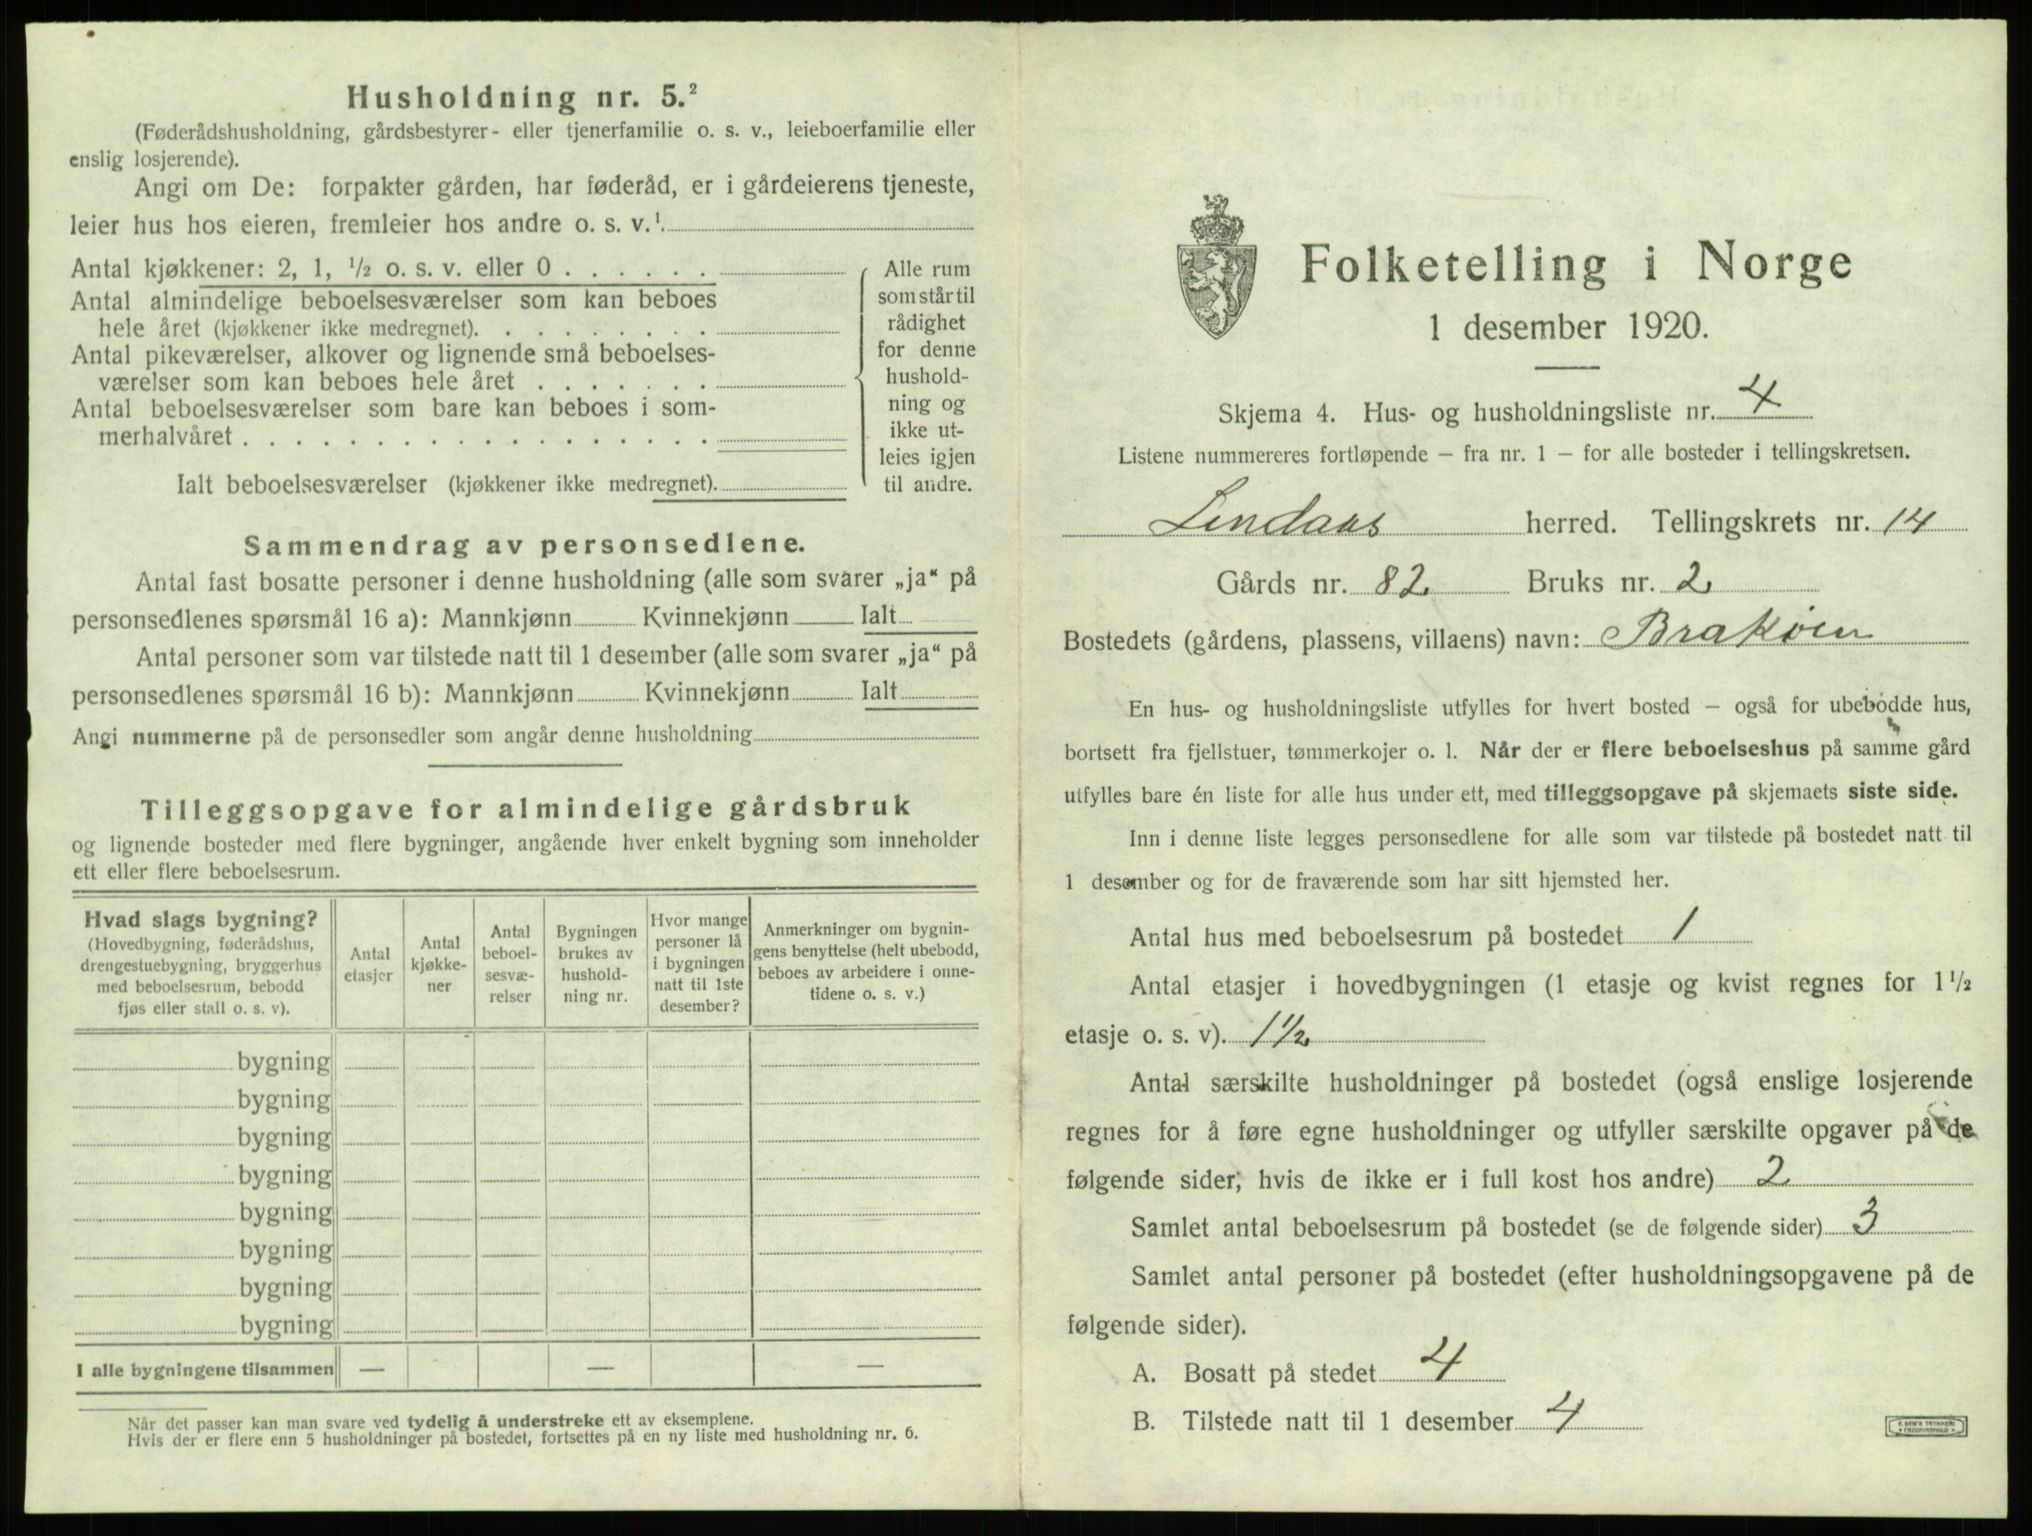 Husholdning nr. 5.²
(Føderådshusholdning, gårdsbestyrer- eller tjenerfamilie o. s. v., leieboerfamilie eller
enslig losjerende).
Angi om De: forpakter gården, har føderåd, er i gårdeierens tjeneste,
leier hus hos eieren, fremleier hos andre o. s. v.¹
Antal kjøkkener: 2, 1, ½ o. s. v. eller 0 . . . . . .
Antal almindelige beboelsesværelser som kan beboes
hele året (kjøkkener ikke medregnet). . . . . . . . .
Antal pikeværelser, alkover og lignende små beboelses-
værelser som kan beboes hele året . . . . . . .
Antal beboelsesværelser som bare kan beboes i som-
merhalvåret . . . . . . . . . . . . . . . . . .
Ialt beboelsesværelser (kjøkkener ikke medregnet).
Alle rum
som står til
rådighet
for denne
hushold-
ning og
ikke ut-
leies igjen
til andre.
Sammendrag av personsedlene.
Antal fast bosatte personer i denne husholdning (alle som svarer „ja“ på
personsedlenes spørsmål 16 a): Mannkjønn Kvinnekjønn Ialt
Antal personer som var tilstede natt til 1 desember (alle som svarer „ja“ på
personsedlenes spørsmål 16 b): Mannkjønn Kvinnekjønn Ialt
Angi nummerne på de personsedler som angår denne husholdning
Tilleggsopgave for almindelige gårdsbruk
og lignende bosteder med flere bygninger, angående hver enkelt bygning som inneholder
ett eller flere beboelsesrum.
Hvad slags bygning?
(Hovedbygning, føderådshus,
drengestuebygning, bryggerhus
med beboelsesrum, bebodd
fjøs eller stall o. s. v).
Antal
etasjer
Antal
kjøkke-
ner
Antal
beboel-
sesvæ-
relser
Bygningen
brukes av
hushold-
ning nr.
Hvor mange
personer lå
i bygningen
natt til 1ste
desember?
Anmerkninger om bygnin-
gens benyttelse (helt ubebodd,
beboes av arbeidere i onne-
tidene o. s. v.)
bygning
bygning
bygning
bygning
bygning
bygning
bygning
bygning
I alle bygningene tilsammen — — —
Når det passer kan man svare ved tydelig å understreke ett av eksemplene.
Hvis der er flere enn 5 husholdninger på bostedet, fortsettes på en ny liste med husholdning nr. 6.
Folketelling i Norge
1 desember 1920.
Skjema 4. Hus- og husholdningsliste nr. 4
Listene nummereres fortløpende – fra nr. 1 – for alle bosteder i tellingskretsen.
Lindaas herred. Tellingskrets nr. 14
Gårds nr. 82. Bruks nr. 2
Bostedets (gårdens, plassens, villaens) navn: Brakøen
En hus- og husholdningsliste utfylles for hvert bosted – også for ubebodde hus,
bortsett fra fjellstuer, tømmerkojer o. l. Når der er flere beboelseshus på samme gård
utfylles bare én liste for alle hus under ett, med tilleggsopgave på skjemaets siste side.
Inn i denne liste legges personsedlene for alle som var tilstede på bostedet natt til
1 desember og for de fraværende som har sitt hjemsted her.
Antal hus med beboelsesrum på bostedet 1
Antal etasjer i hovedbygningen (1 etasje og kvist regnes for 1½
etasje o. s. v). 1½
Antal særskilte husholdninger på bostedet (også enslige losjerende
regnes for å føre egne husholdninger og utfyller særskilte opgaver på de
følgende sider, hvis de ikke er i full kost hos andre) 2
Samlet antal beboelsesrum på bostedet (se de følgende sider) 3
Samlet antal personer på bostedet (efter husholdningsopgavene på de
følgende sider).
A. Bosatt på stedet 4
B. Tilstede natt til 1 desember 4
E. SEM'S TRYKKERI
FREDRIKSHALD